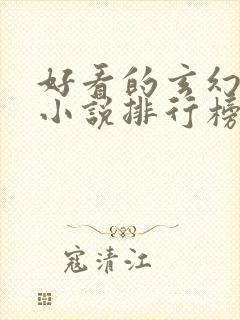 好看的玄幻
小说排行榜
寇清江